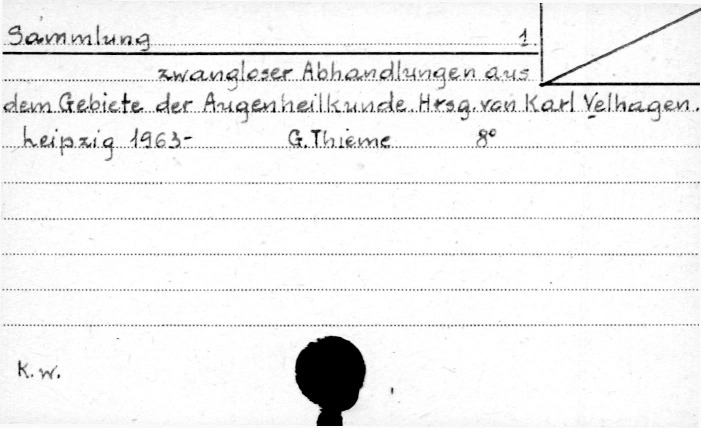 Sammlung 1.
zwangloser Abhandlungen aus
dem Gebiete der Augenheilkunde. Hrsg. von Karl Velhagen.
Leipzig 1963- G. Thieme 8°
K. w.